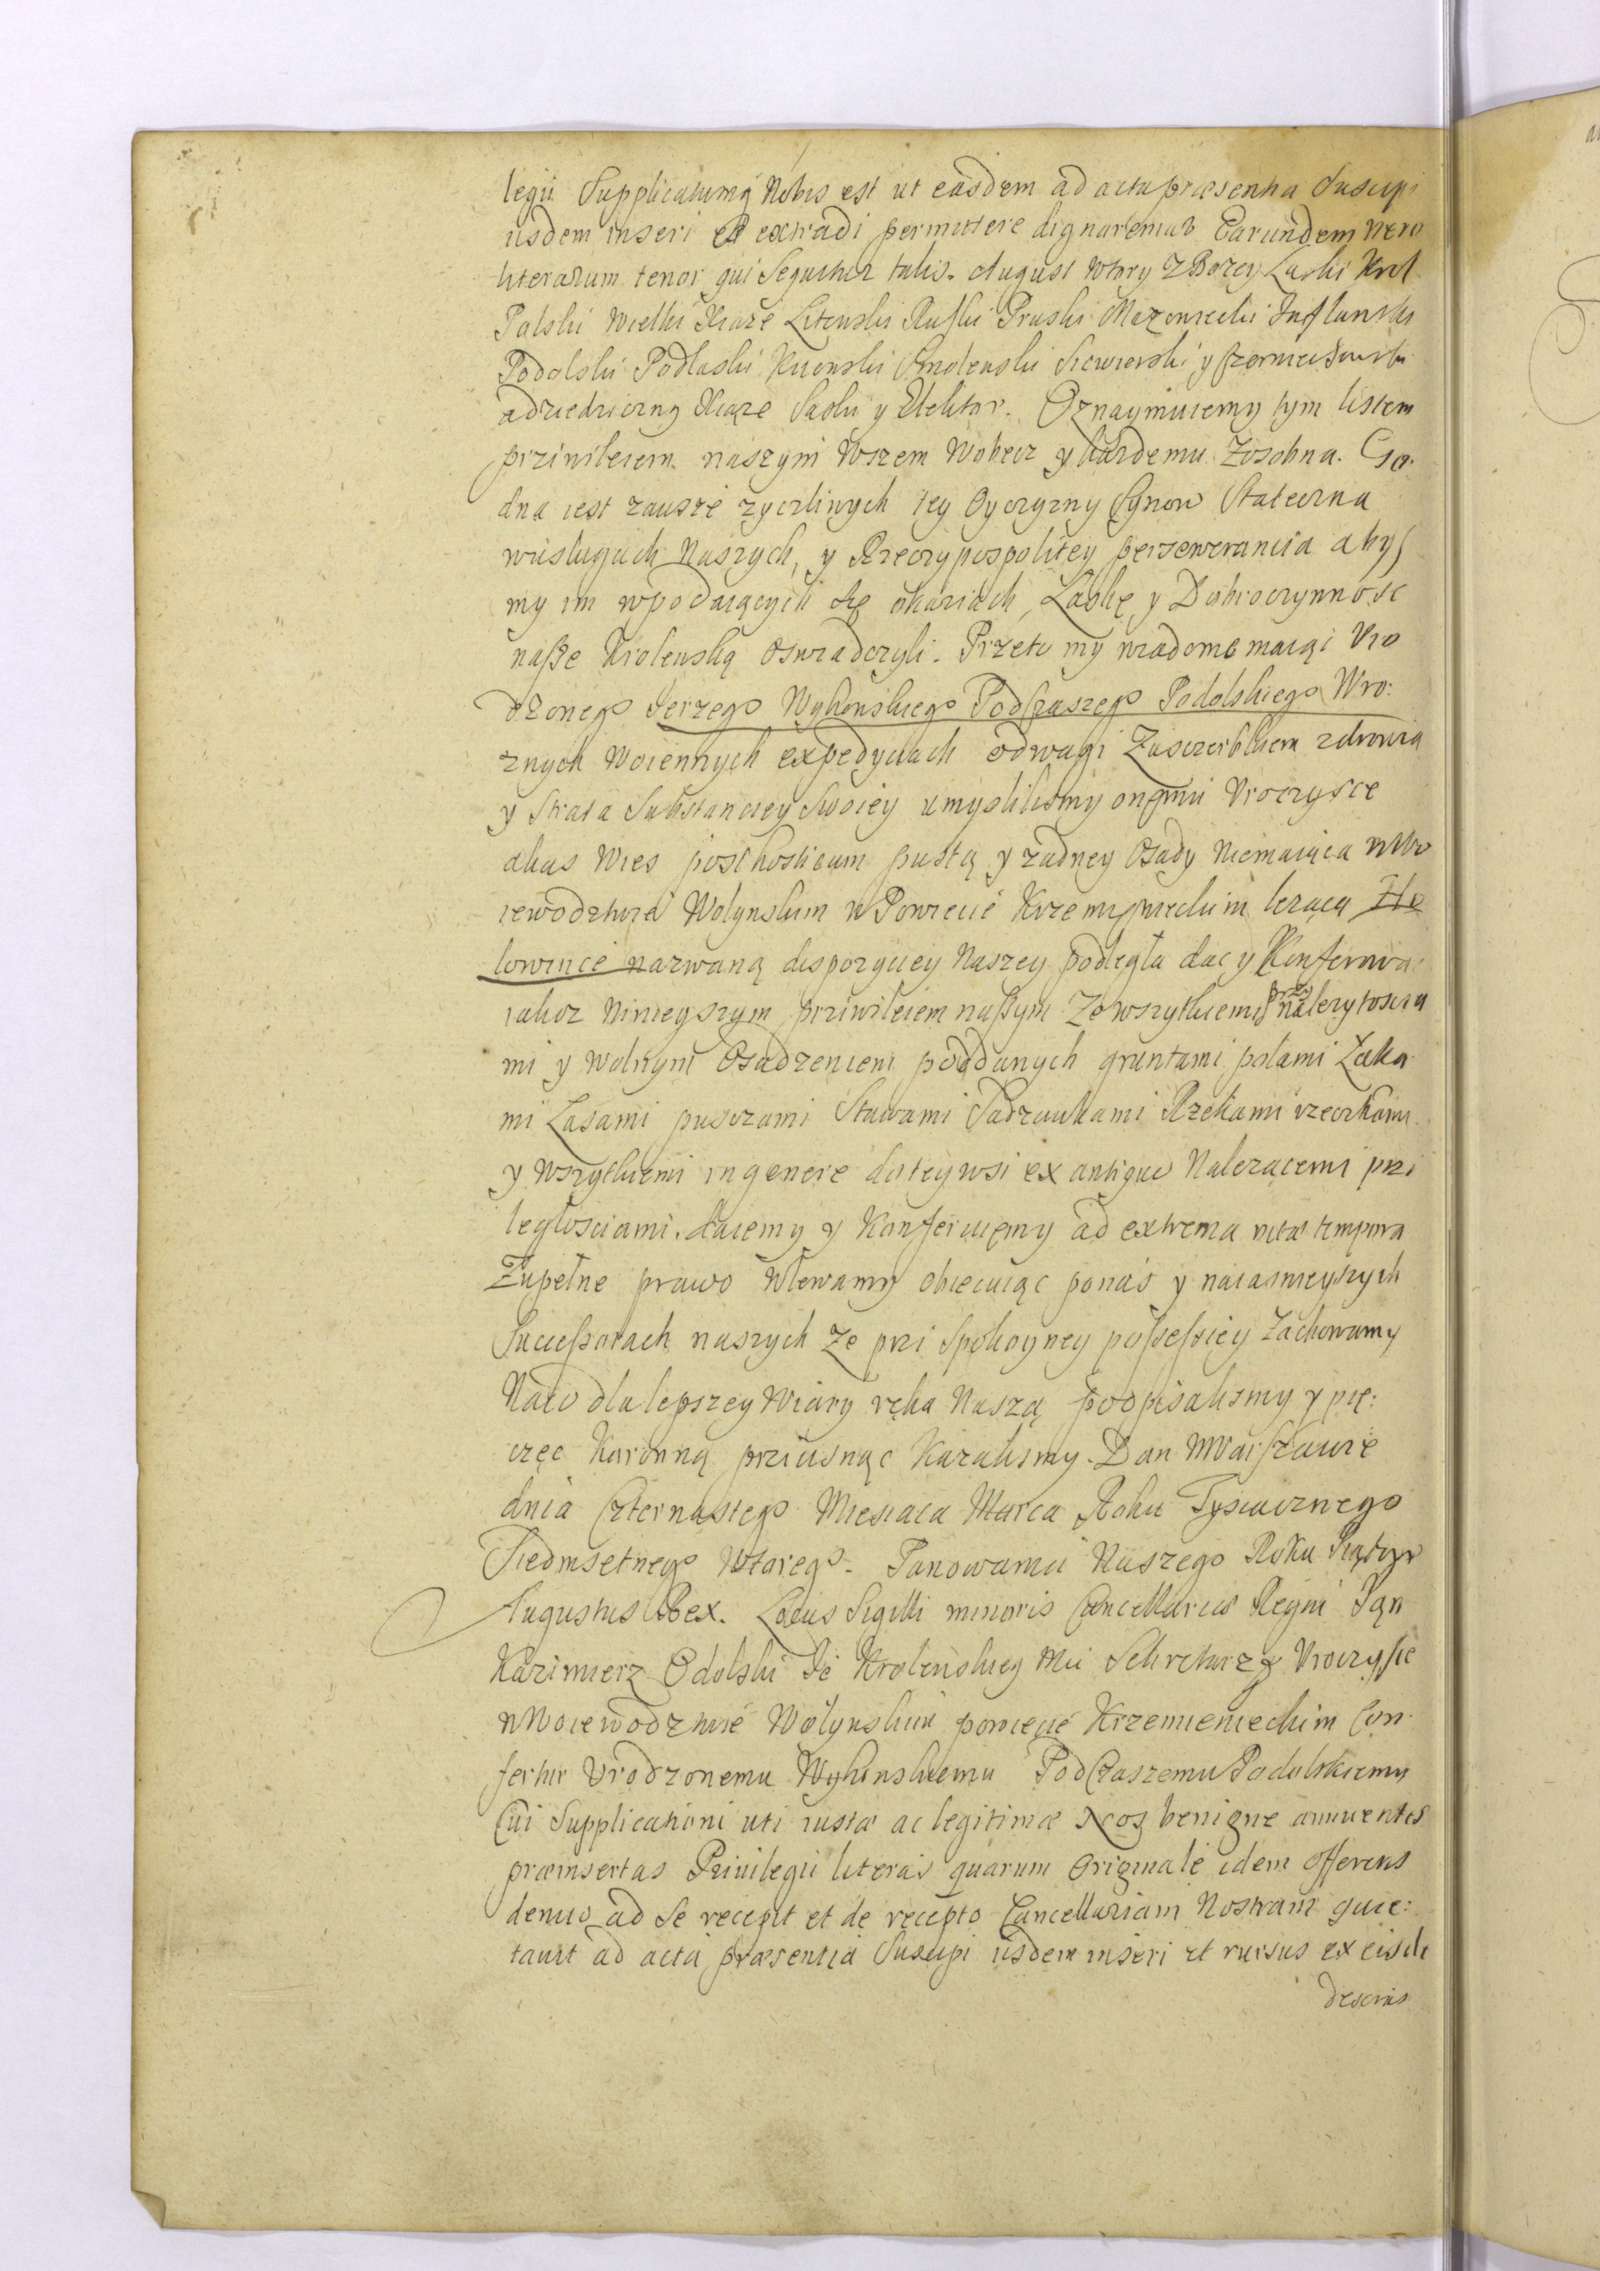 legii Supplicatumq Nobis est ut easdem ad acta præsentia Suscipi
iisdem inseri et extradi permittere dignaremur Earundem vero
literarum tenor qui Sequitur talis. August wtory z Bozey Laski Krol
Polski Wielki Xiąże Litewski Ruski Pruski Mazowiecki Inflanski
Podolski Podlaski Kiiowski Smolenski Siewierski y Czerniechowski
a dziedziczny Xiąze Saski y Elektor. Oznaymuiemy tym listem
przivileiem naszym Wszem Wobecz y kazdemu Zosobna. Go:
dna iest zausze zyczliwych tey Oyczyzny Synow Stateczna
wusługach Naszych, y Rzeczypospolitey perseverancia abys
my im wpodaiących się okaziach, Laskę y Dobroczynnosc
naszę Krolewską oswiadczyli. Przeto my wiadome maiąc Vro
dzonego Jerzego Wyhowskiego PodCzaszego Podolskiego Wro:
znych Woiennych expedyciach odwagi Zusczerbkiem zdrowia
y Strata Substanciey Swoiey umyslilismy onemu Vroczysce
alias Wies post hosticum pustą y zadney Osady Niemaiąca wWo
iewodztwie Wolynskim w Powiecie Krzemienieckim lezącą Ho
lowince nazwaną dispozyciey Naszey podległa dac y Konferowac
iakoz Ninieyszym przivileiem naszym Ze wszytkiemi przynalezytoscia
mi y wolnym Osadzeniem poddanych gruntami polami Łąka
mi Lasami pusczami Stawami Sadzawkami Rzekami rzeczkami
y wszytkiemi in genere do tey wsi ex antiquo Nalezącemi przi
ległosciami. daiemy y Konferuiemy ad extrema vitæ tempora
Zupełne prawo Wlewamy obiecuiąc po nas y naiasnieyszych
Successorach naszych Ze przi Spokoyney possessiey Zachowamy
Na co dla lepszey Wiary ręka Naszą podpisalismy y pię:
częc Koronną przicisnąc Kazalismy. Dan wWarszawie
dnia Czternastego Miesiaca Marca Roku Tysiącznego
Siedmsetnego Wtorego. Panowania Naszego Roku Piątego
Augustus Rex. Locus Sigilli minoris Cancellariæ Regni Jan
Kazimierz Odolski Je Krolewskiey Mci Sekretarz Vroczysce
w Woiewodztwie Wołynskim powiecie Krzemienieckim Con:
fertur Vrodzonemu Wyhowskiemu PodCzaszemu Podolskiemu
Cui Supplicationi uti iustæ ac legitimæ Nos benigne annuentes
præinsertas Privilegii literas quarum Originale idem offerens
denuo ad Se recepit et de recepto Cancellariam Nostram quie:
tavit ad acta præsentia Suscipi iisdem inseri et rursus ex eisde
descri